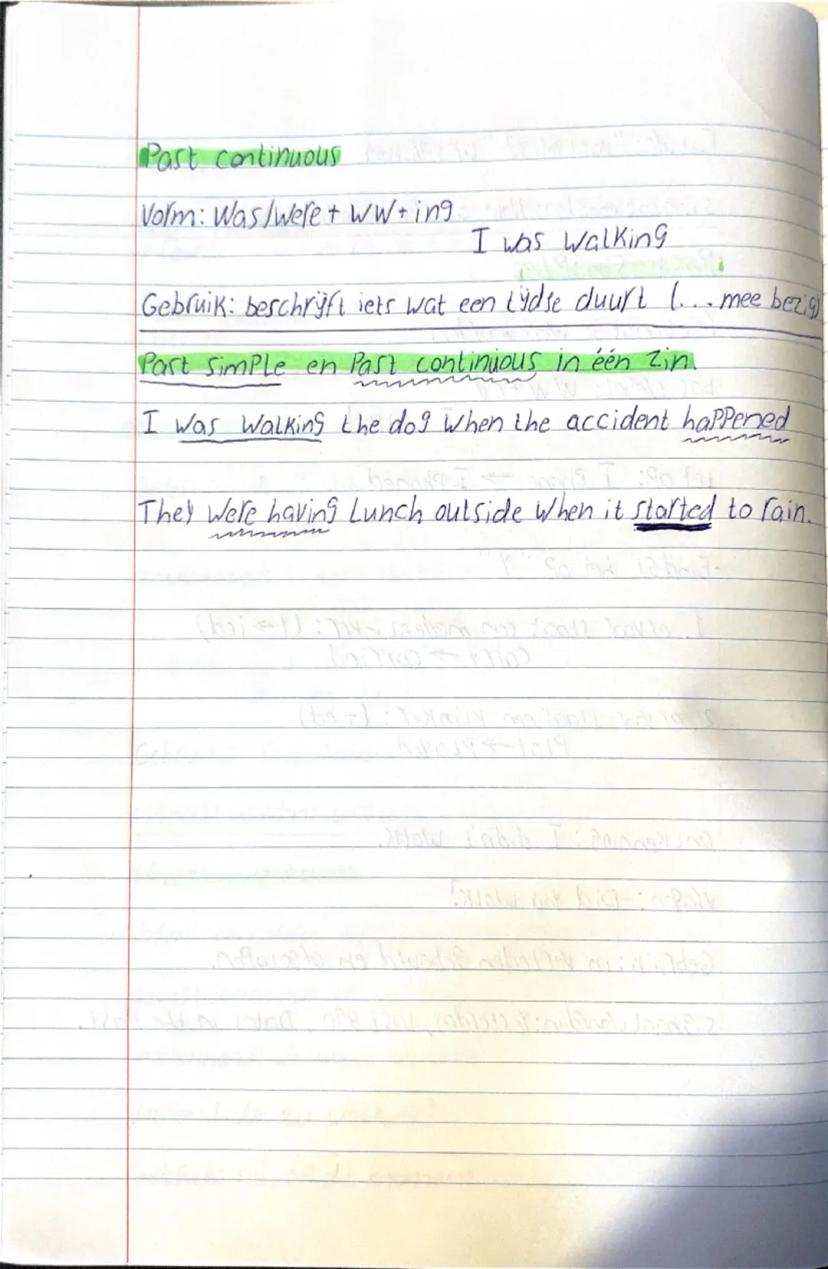 Past continuous
Vorm: Was/were + ww + ing
I was walking
Gebruik: beschrijft iets wat een tijdse duurt (... mee bezig)
Past simple en Past continuous in één zin.
I was walking the dog when the accident happened
They were having lunch outside when it started to rain.